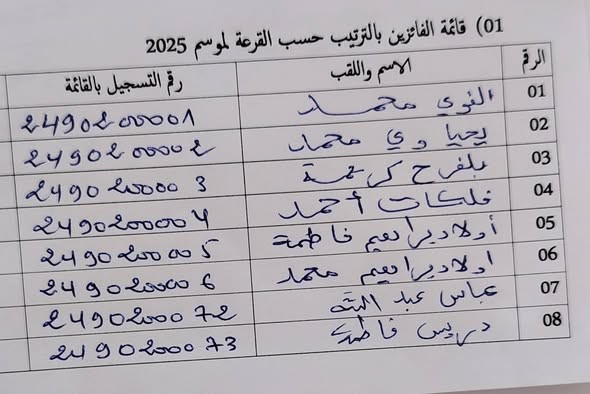 01) قائمة الفائزين بالترتيب حسب القرعة لموسم 2025
الرقم الاسم واللقب رقم التسجيل بالقائمة
01 الغوي محمد 24902000001
02 يحياوي محمد 24902000002
03 بلفرح كريمة 24902000003
04 فلكات أحمد 24902000004
05 أولاد يراهيم فاطمة 24902000005
06 اولاد يراهيم محمد 24902000006
07 عباس عبد الله 24902000072
08 دريس فاطمة 24902000073